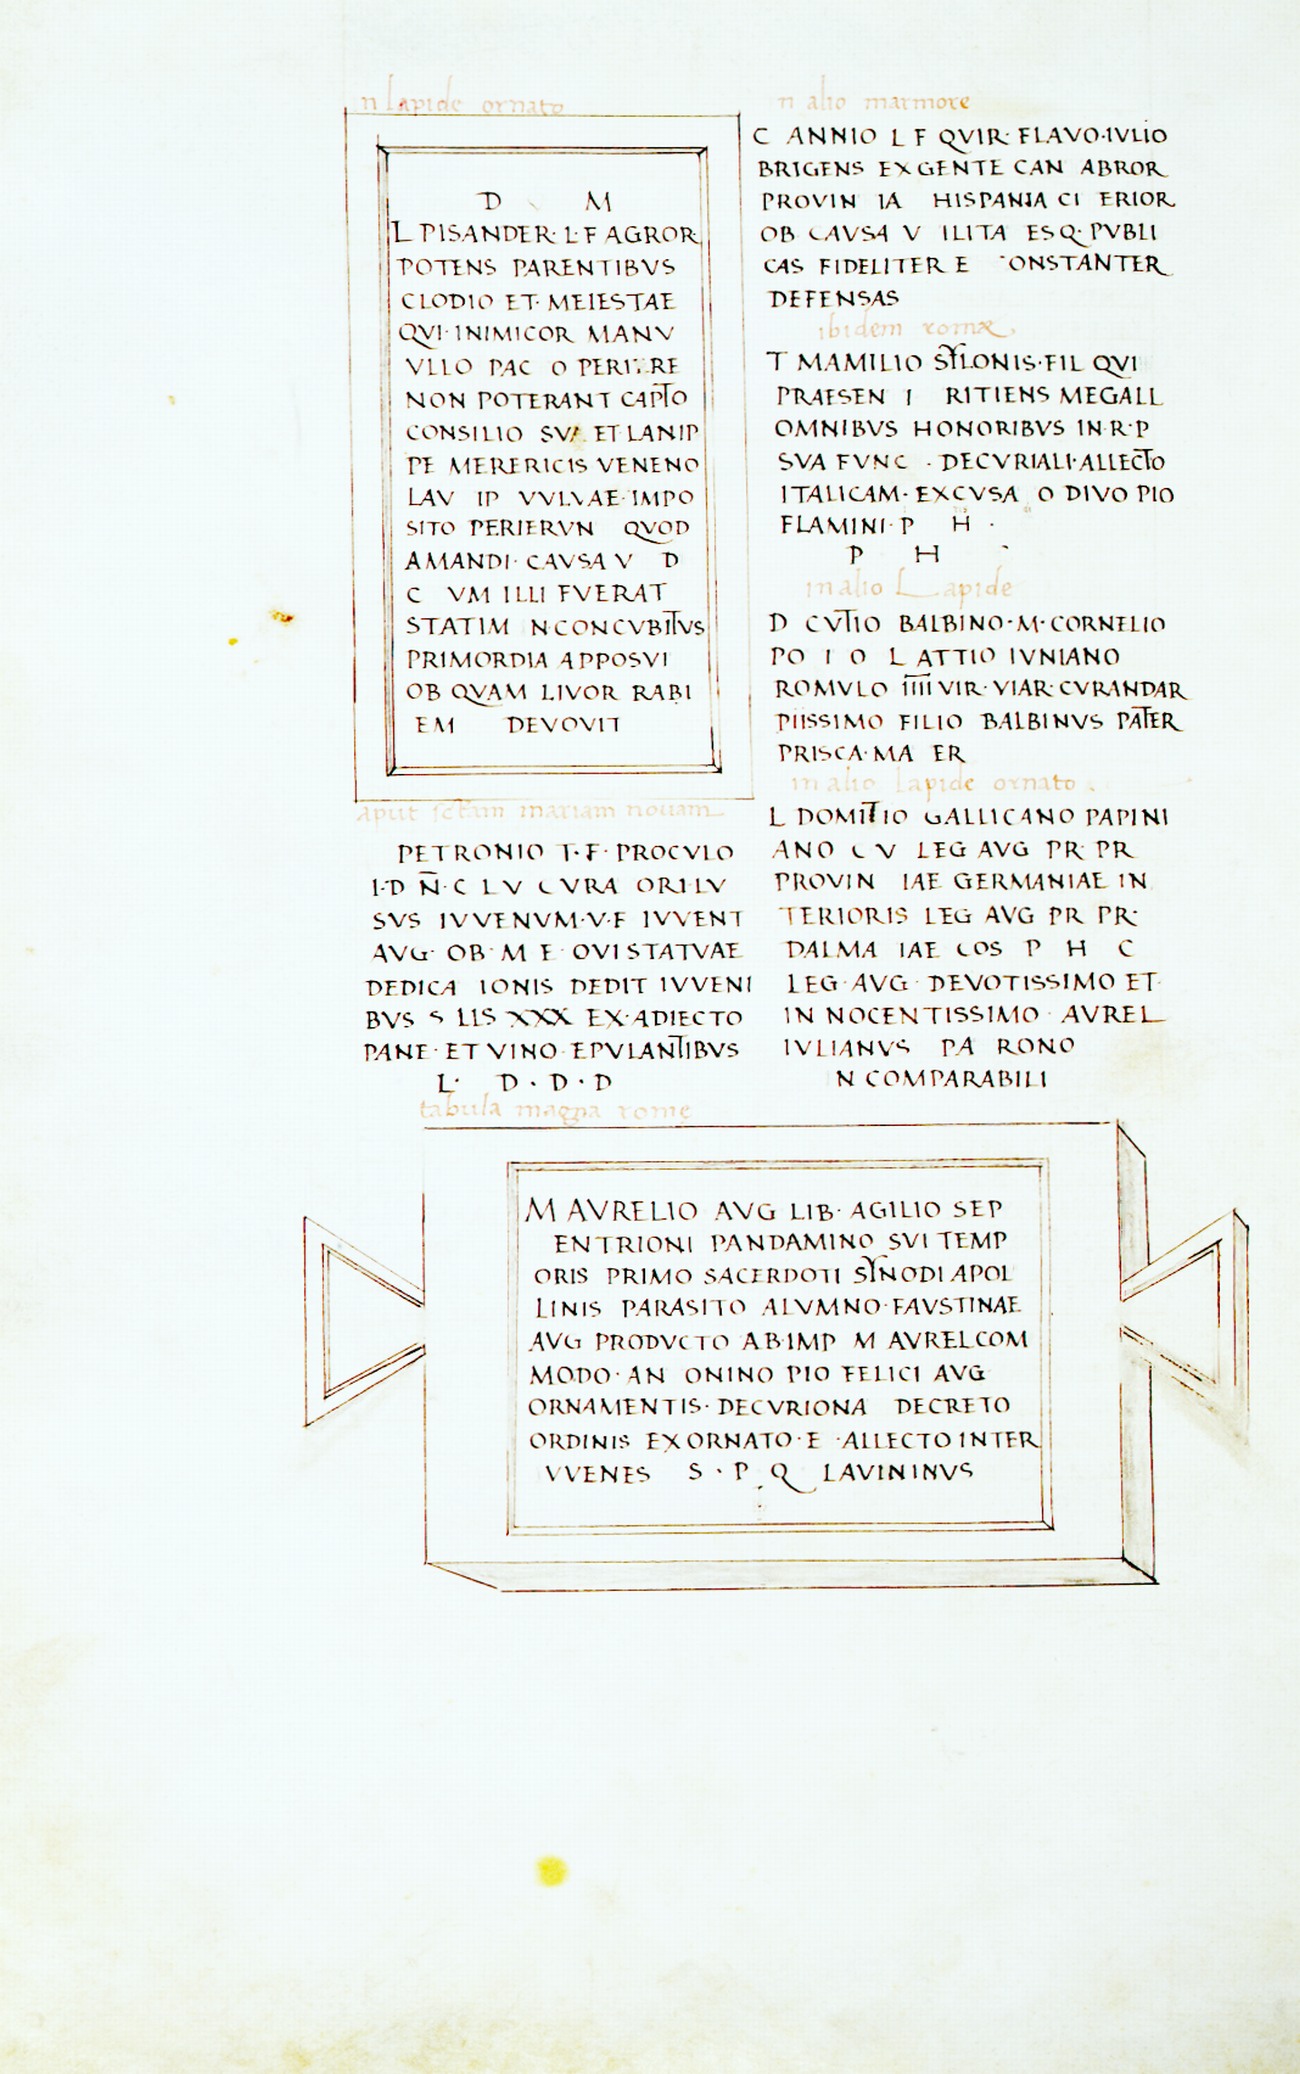 n lapide ornato
D M
L PISANDER· L·F AGROR
POTENS PARENTIBVS
CLODIO ET· MEIESTAE
QVI· INIMICOR MANV
VLLO PAC O
NON POTERANT CAPTO
CONSILIO ET LANIP
PE MERERICIS VENENO
LAV IP VVLVAE· IMPO
SITO PERIERVN QVOD
AMANDI· CAVSA V D
C VM ILLI FVERAT
STATIM N·CONCVBITVS
PRIMORDIA APPOSVI
OB QVAM LIVOR RABI
EM DEVOVIT
aput sctam mariam novam
PETRONIO T·F· PROCVLO
I·D N̄·C L V CVRA ORI·LV
SVS IVVENVM·V·F IVVENT
AVG· OB· M E OVI STATVAE
DEDICA IONIS DEDIT IVVENI
BVS S LIS XXX EX·ADIECTO
PANE· ET VINO EPVLANTIBVS
L· D·D·D
n alio marmore
C ANNIO L F QVIR· FLAVO·IVLIO
BRIGENS EX GENTE CAN ABROR
PROVIN IA HISPANIA CI ERIOR
OB CAVSA V ILITA ESQ· PVBLI
CAS FIDELITER E ONSTANTER
DEFENSAS
ibidem romæ
T MAMILIO SYLONIS·FIL QVI
PRAESEN I RITIENS MEGALL
OMNIBVS HONORIBVS IN·R·P
SVA FVNC · DECVRIALI·ALLECTO
ITALICAM· EXCVSA O DIVO PIO
FLAMINI· P H ·
P H
in alio Lapide
D CVTIO BALBINO·M·CORNELIO
PO I O L ATTIO IVNIANO
ROMVLO I̅I̅I̅I̅ VIR· VIAR·CVRANDAR
PIISSIMO FILIO BALBINVS PATER
PRISCA·MA ER
in alio lapide ornato
L DOMITIO GALLICANO PAPINI
ANO C V LEG AVG PR· PR
PROVIN IAE GERMANIAE IN
TERIORIS LEG AVG PR PR·
DALMA IAE COS P H C
LEG·AVG· DEVOTISSIMO ET·
IN NOCENTISSIMO· AVREL
IVLIANVS PA RONO
N COMPARABILI
tabula magna rome
M AVRELIO AVG LIB· AGILIO SEP
ENTRIONI PANDAMINO SVI TEMP
ORIS PRIMO SACERDOTI SYNODI APOL
LINIS PARASITO ALVMNO·FAVSTINAE
AVG PRODVCTO AB·IMP M AVREL COM
MODO· AN ONINO PIO FELICI AVG
ORNAMENTIS· DECVRIONA DECRETO
ORDINIS EXORNATO· E ·ALLECTO INTER
VVENES S·P Q LAVININVS